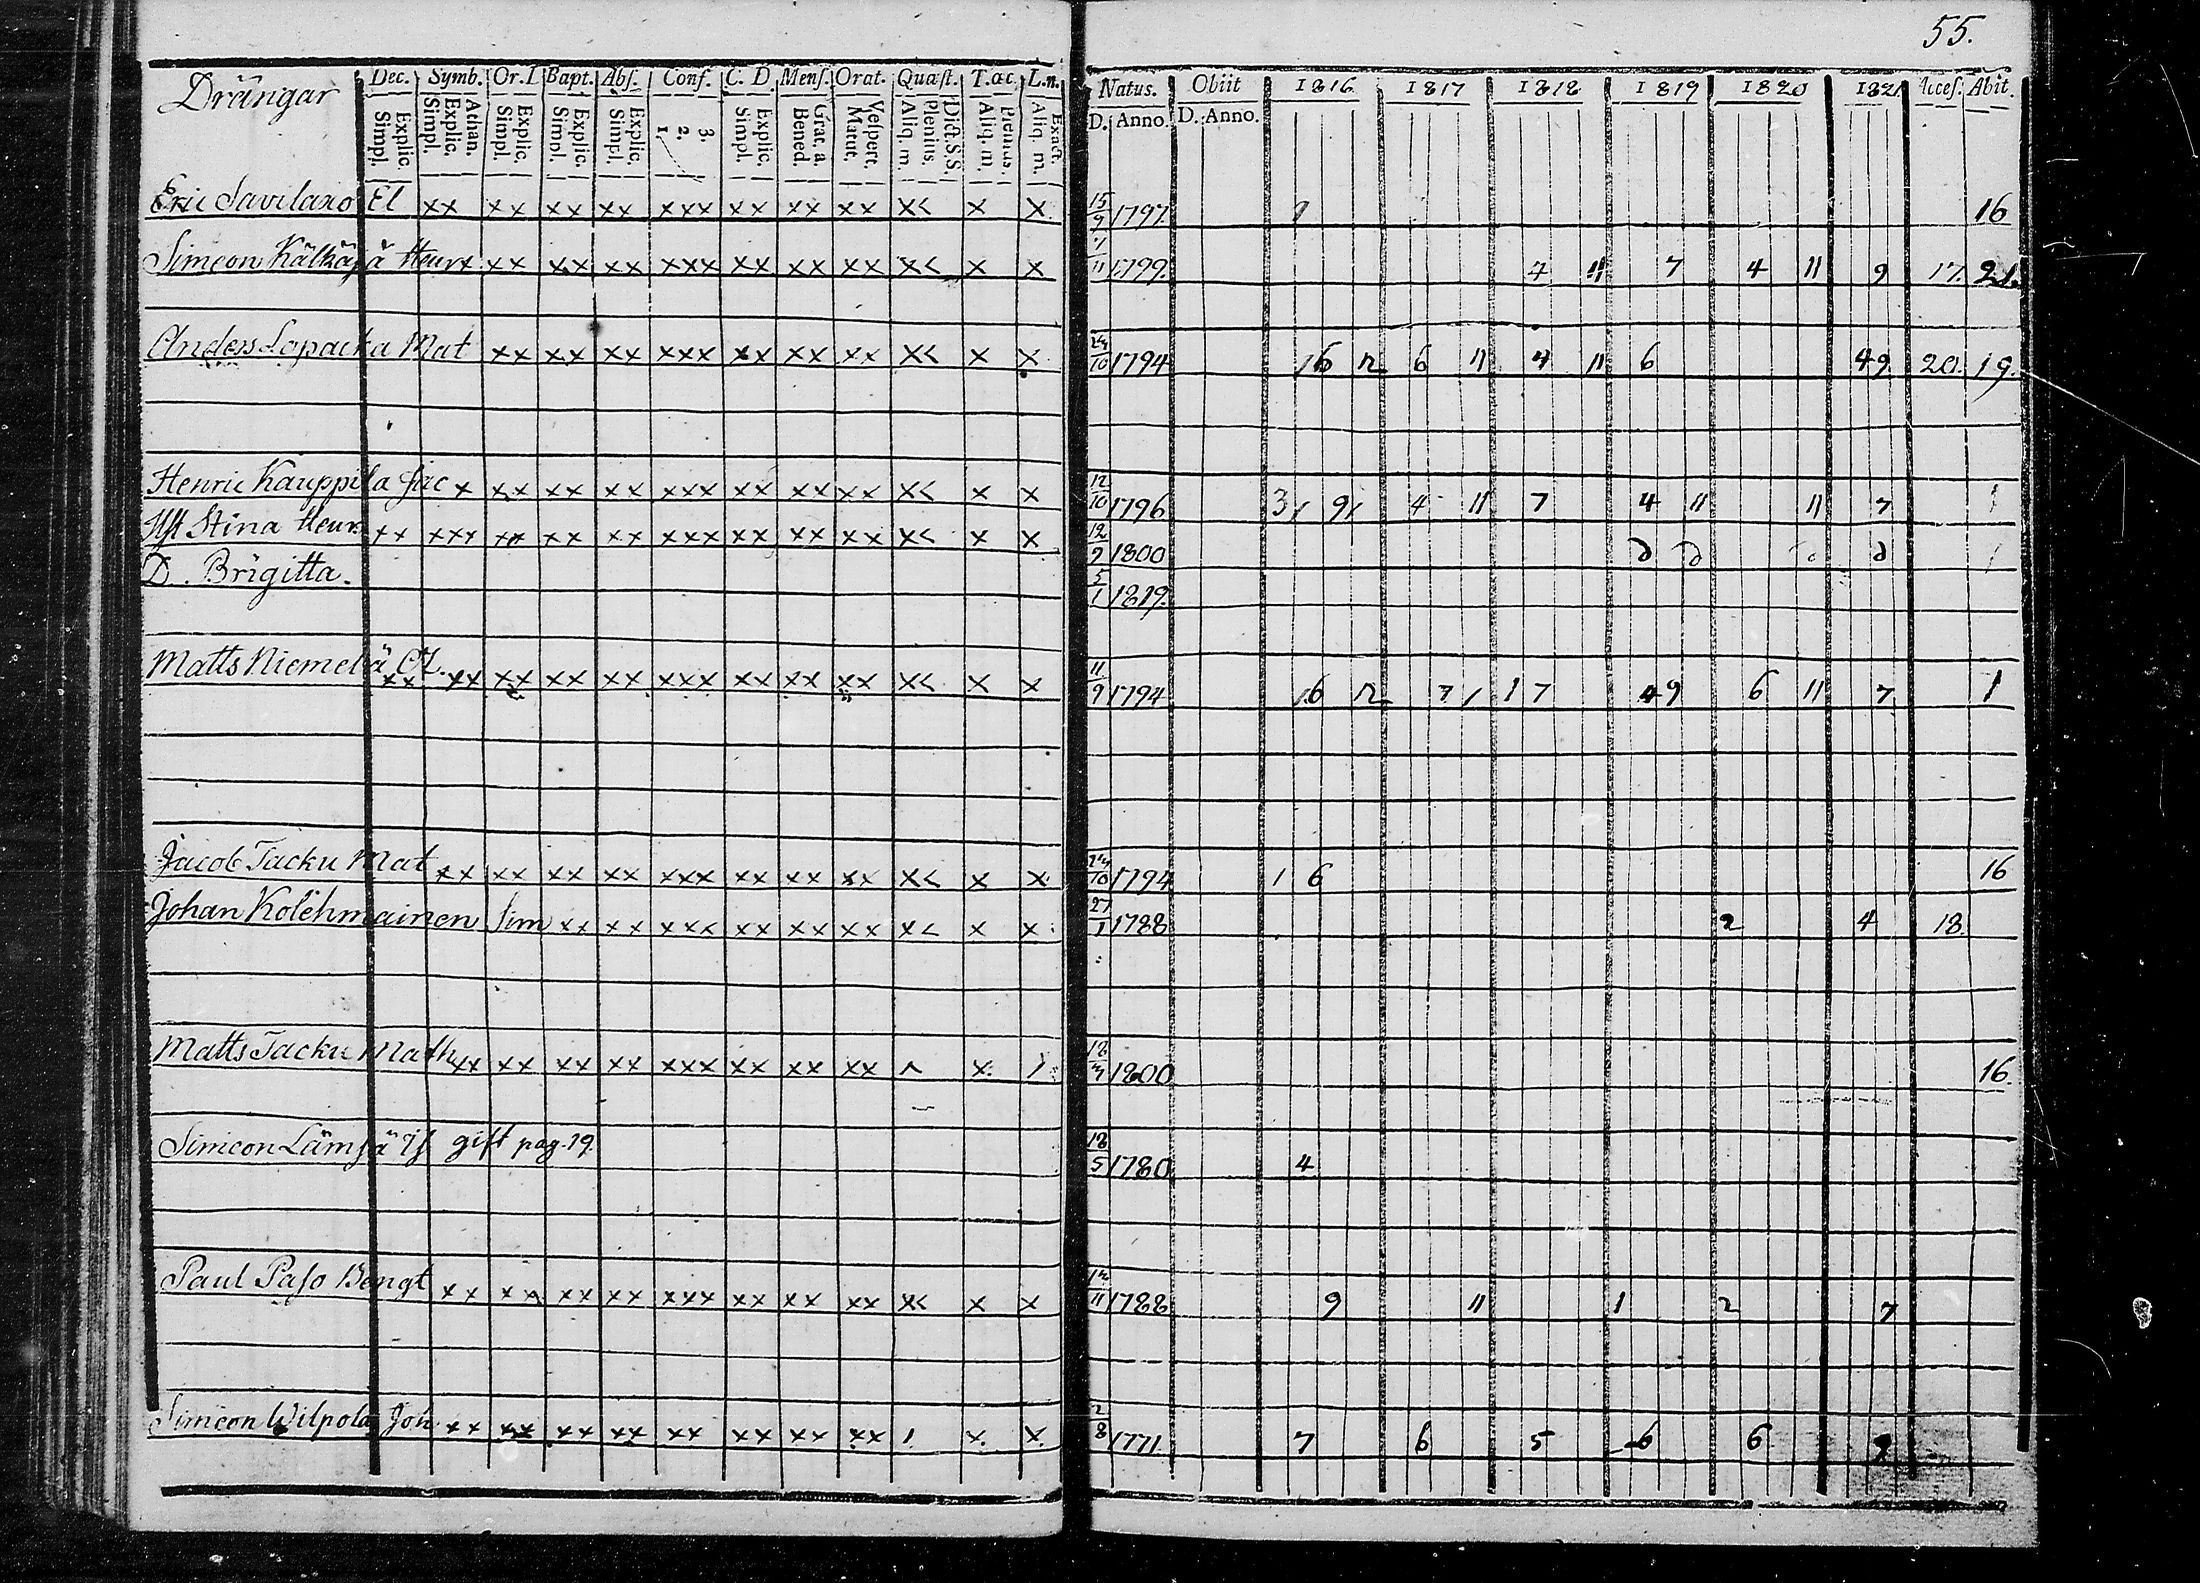 55.
Drängar Dec. Symb. Or.D Bapt. Abs. Conf. C. D. Mens. Orat. Quæst. T.æc. L.n. Natus. Obiit 1816 1817 1818 1819 1820 1821 Acces. Abit.
Explic. Simpl. Athan. Explic. Simpl. Explic. Simpl. Explic. Simpl. Explic. Simpl. 3. 2. 1. Explic. Simpl. Grat. a. Bened. Vespert. Matut. Dict.S.S. Plenius. Aliq. m. Plenius. Aliq. m. Exact. Aliq. m. D. Anno. D. Anno.
Eric Savilaxo El xx xx xx xx xxx xx xx xx x< x x 15/9 1797 16
Simeon Kälkäjä Henr x xx xx xx xxx xx xx xx x< x x 11 1799 7 11 7 4 11 9 17. 21.
Anders Lapacka Mat xx xx xx xxx xx xx xx x< x x 24/10 1794 16 12 6 11 4 11 6 49 20. 19.
Henric Kauppila Jac x xx xx xx xxx xx xx xx x< x x 12/10 1796 3/ 9/ 4 11 7 4 11 11 7 1
Hst Stina Henr. xx xxx xx xx xx xxx xx xx xx x< x x 12/9 1800 d d d d 1
D. Brigitta. 5/1 1819
Matts Niemelä xx xx xx xx xx xxx xx xx xx x< x x 11/9 1794 16 12 7 / 1 7 49 6 11 7 1
Jacob Tacku Mat xx xx xx xx xxx xx xx xx x< x x 24/10 1794 1 6 16
Johan Kolehmainen Sim xx xx xxx xx xx xx x< x x 27/1 1788 2 4 18.
Matts Tacku Math xx xx xx xx xxx xx xx xx x 1800 16.
Simeon Lämsä gift pag. 19. 18/5 1780 4
Paul Paso Bengt xx xx xx xx xxx xx xx xx x< x x 11 1788 9 11 1 2 7
Simeon Wilpola Joh xx xx xx xx xx xx xx xx 1. x. x. 2/8 1771 7 6 5 6 6 9